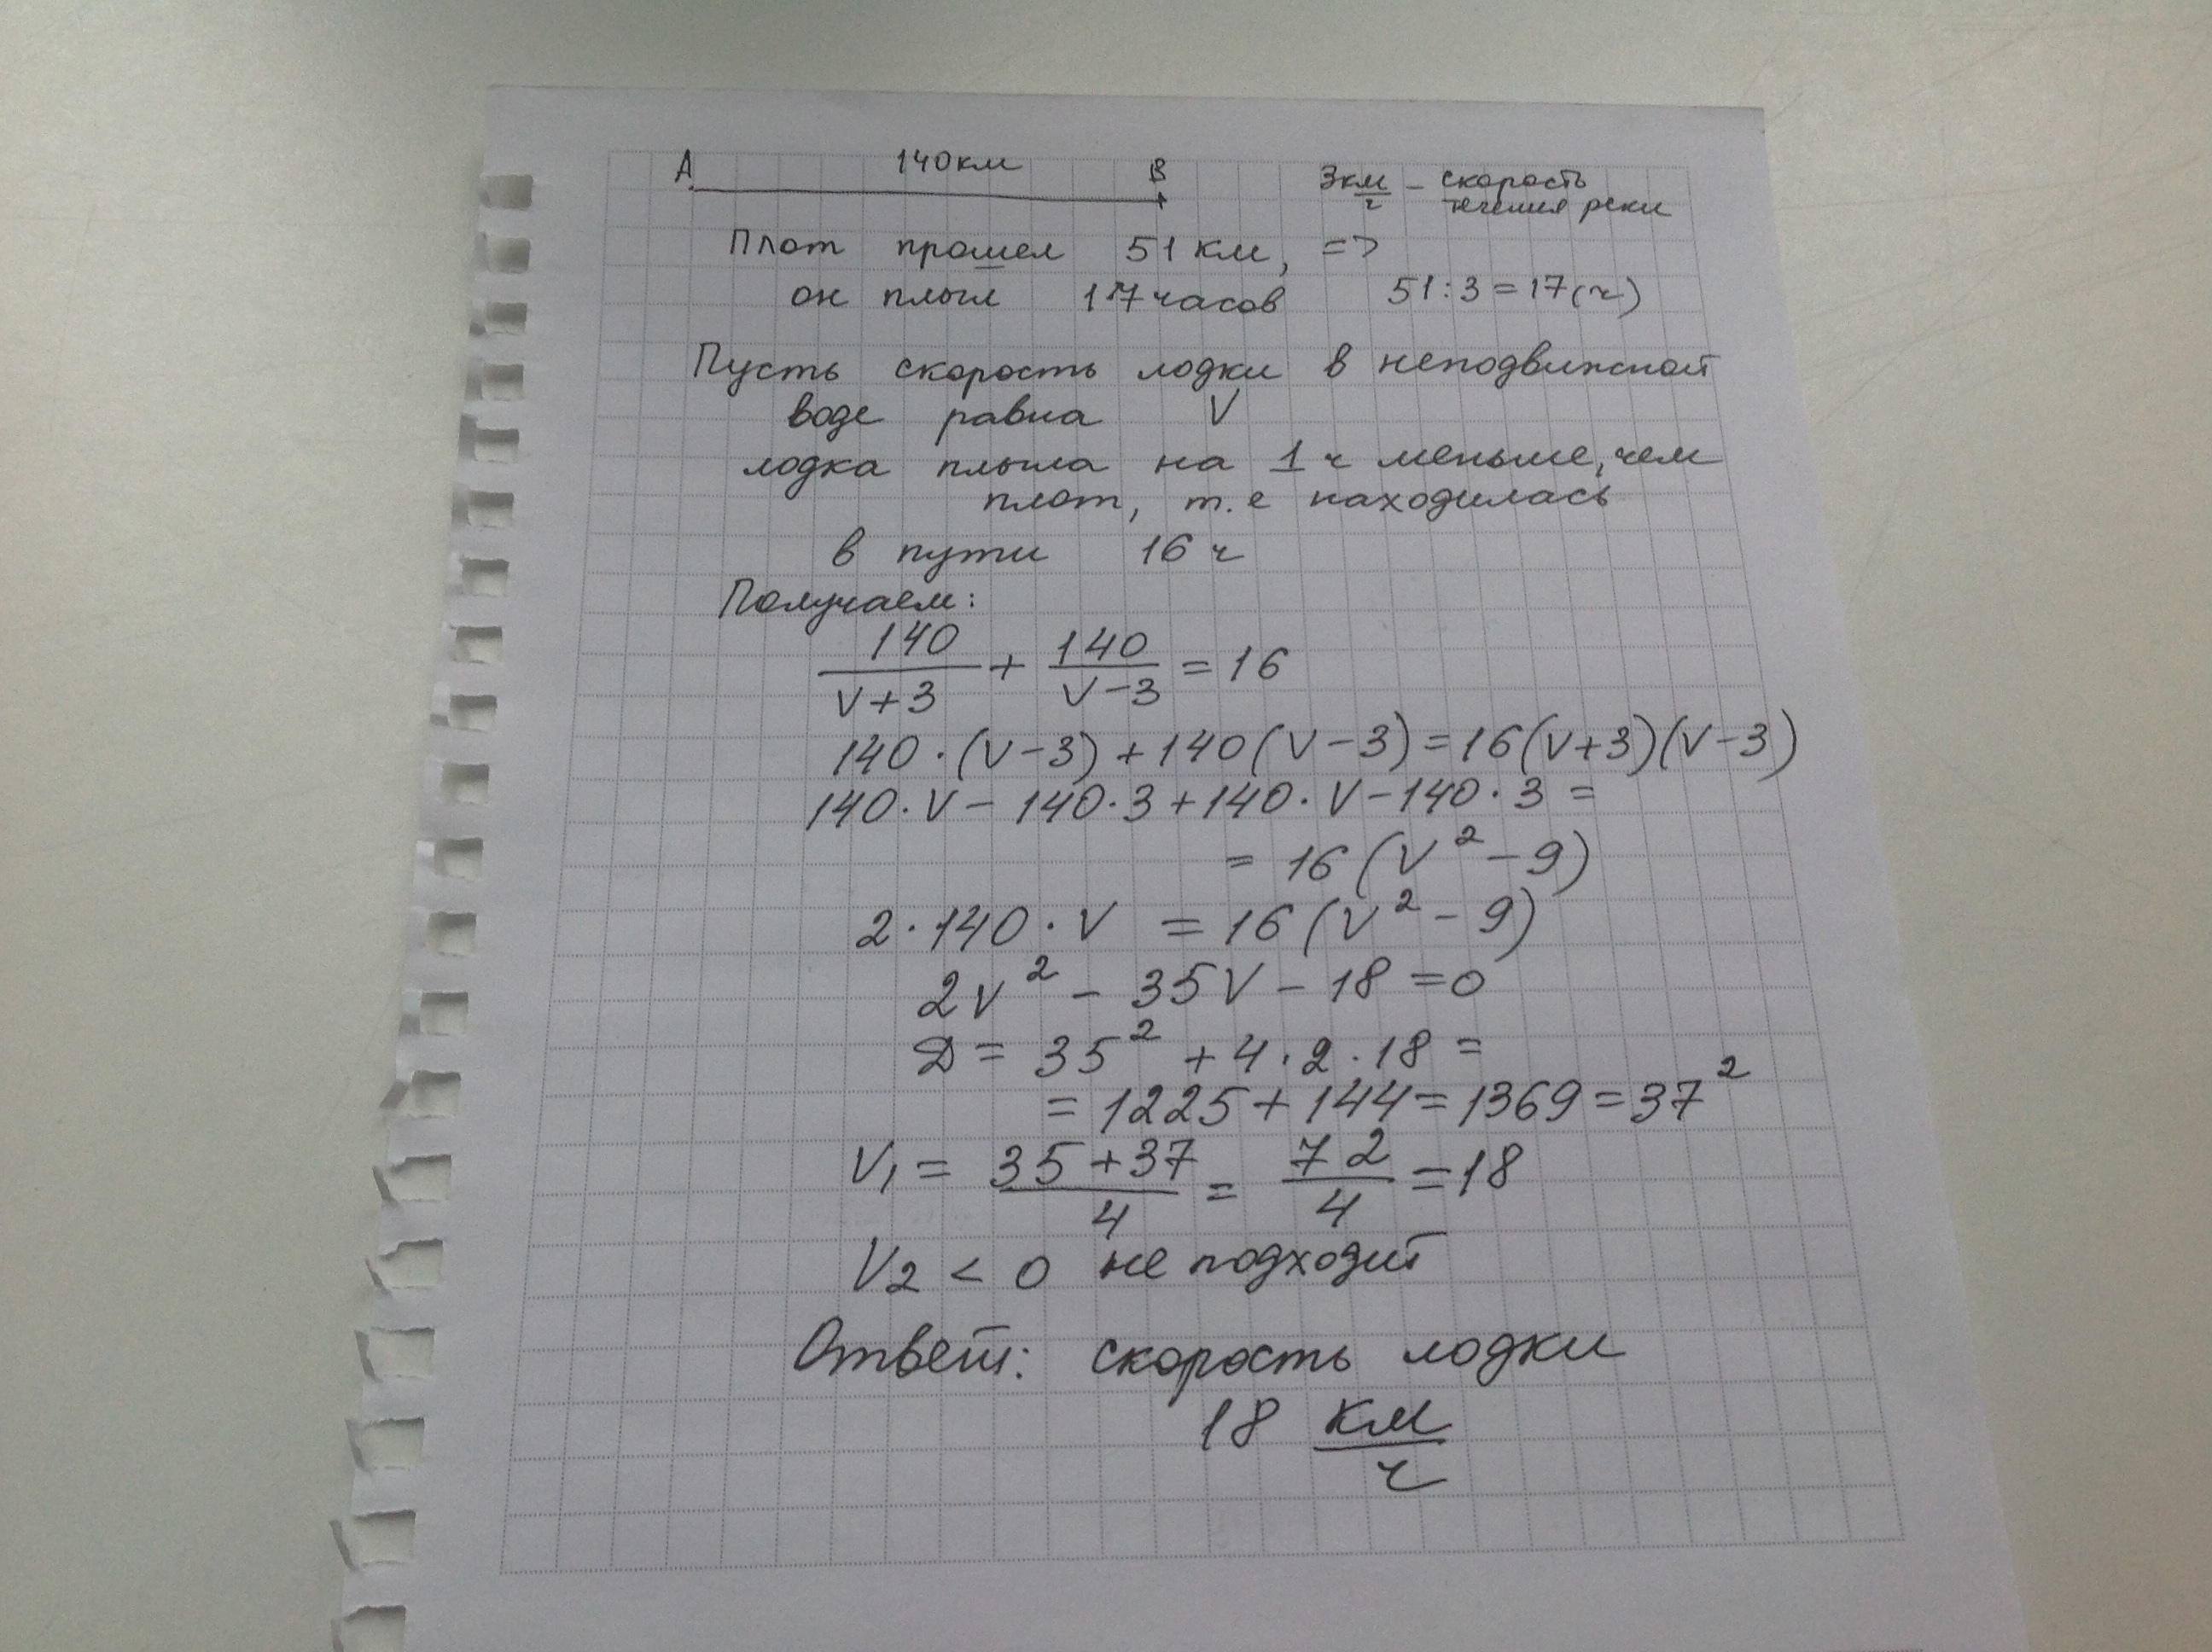 A 140км B 3км/ч – скорость течения реки
Плот прошел 51 км, =>
он плыл 17 часов 51:3=17(ч)
Пусть скорость лодки в неподвижной
воде равна V
лодка плыла на 1 ч меньше, чем
плот, т.е находилась
в пути 16 ч
Получаем:
140/(V+3) + 140/(V-3) = 16
140·(V-3)+140(V-3)=16(V+3)(V-3)
140·V-140·3+140·V-140·3=
=16(V²-9)
2·140·V =16(V²-9)
2V²-35V-18=0
D=35²+4·2·18=
=1225+144=1369=37²
V₁=(35+37)/4=72/4=18
V₂<0 не подходит
Ответ: скорость лодки
18 км/ч